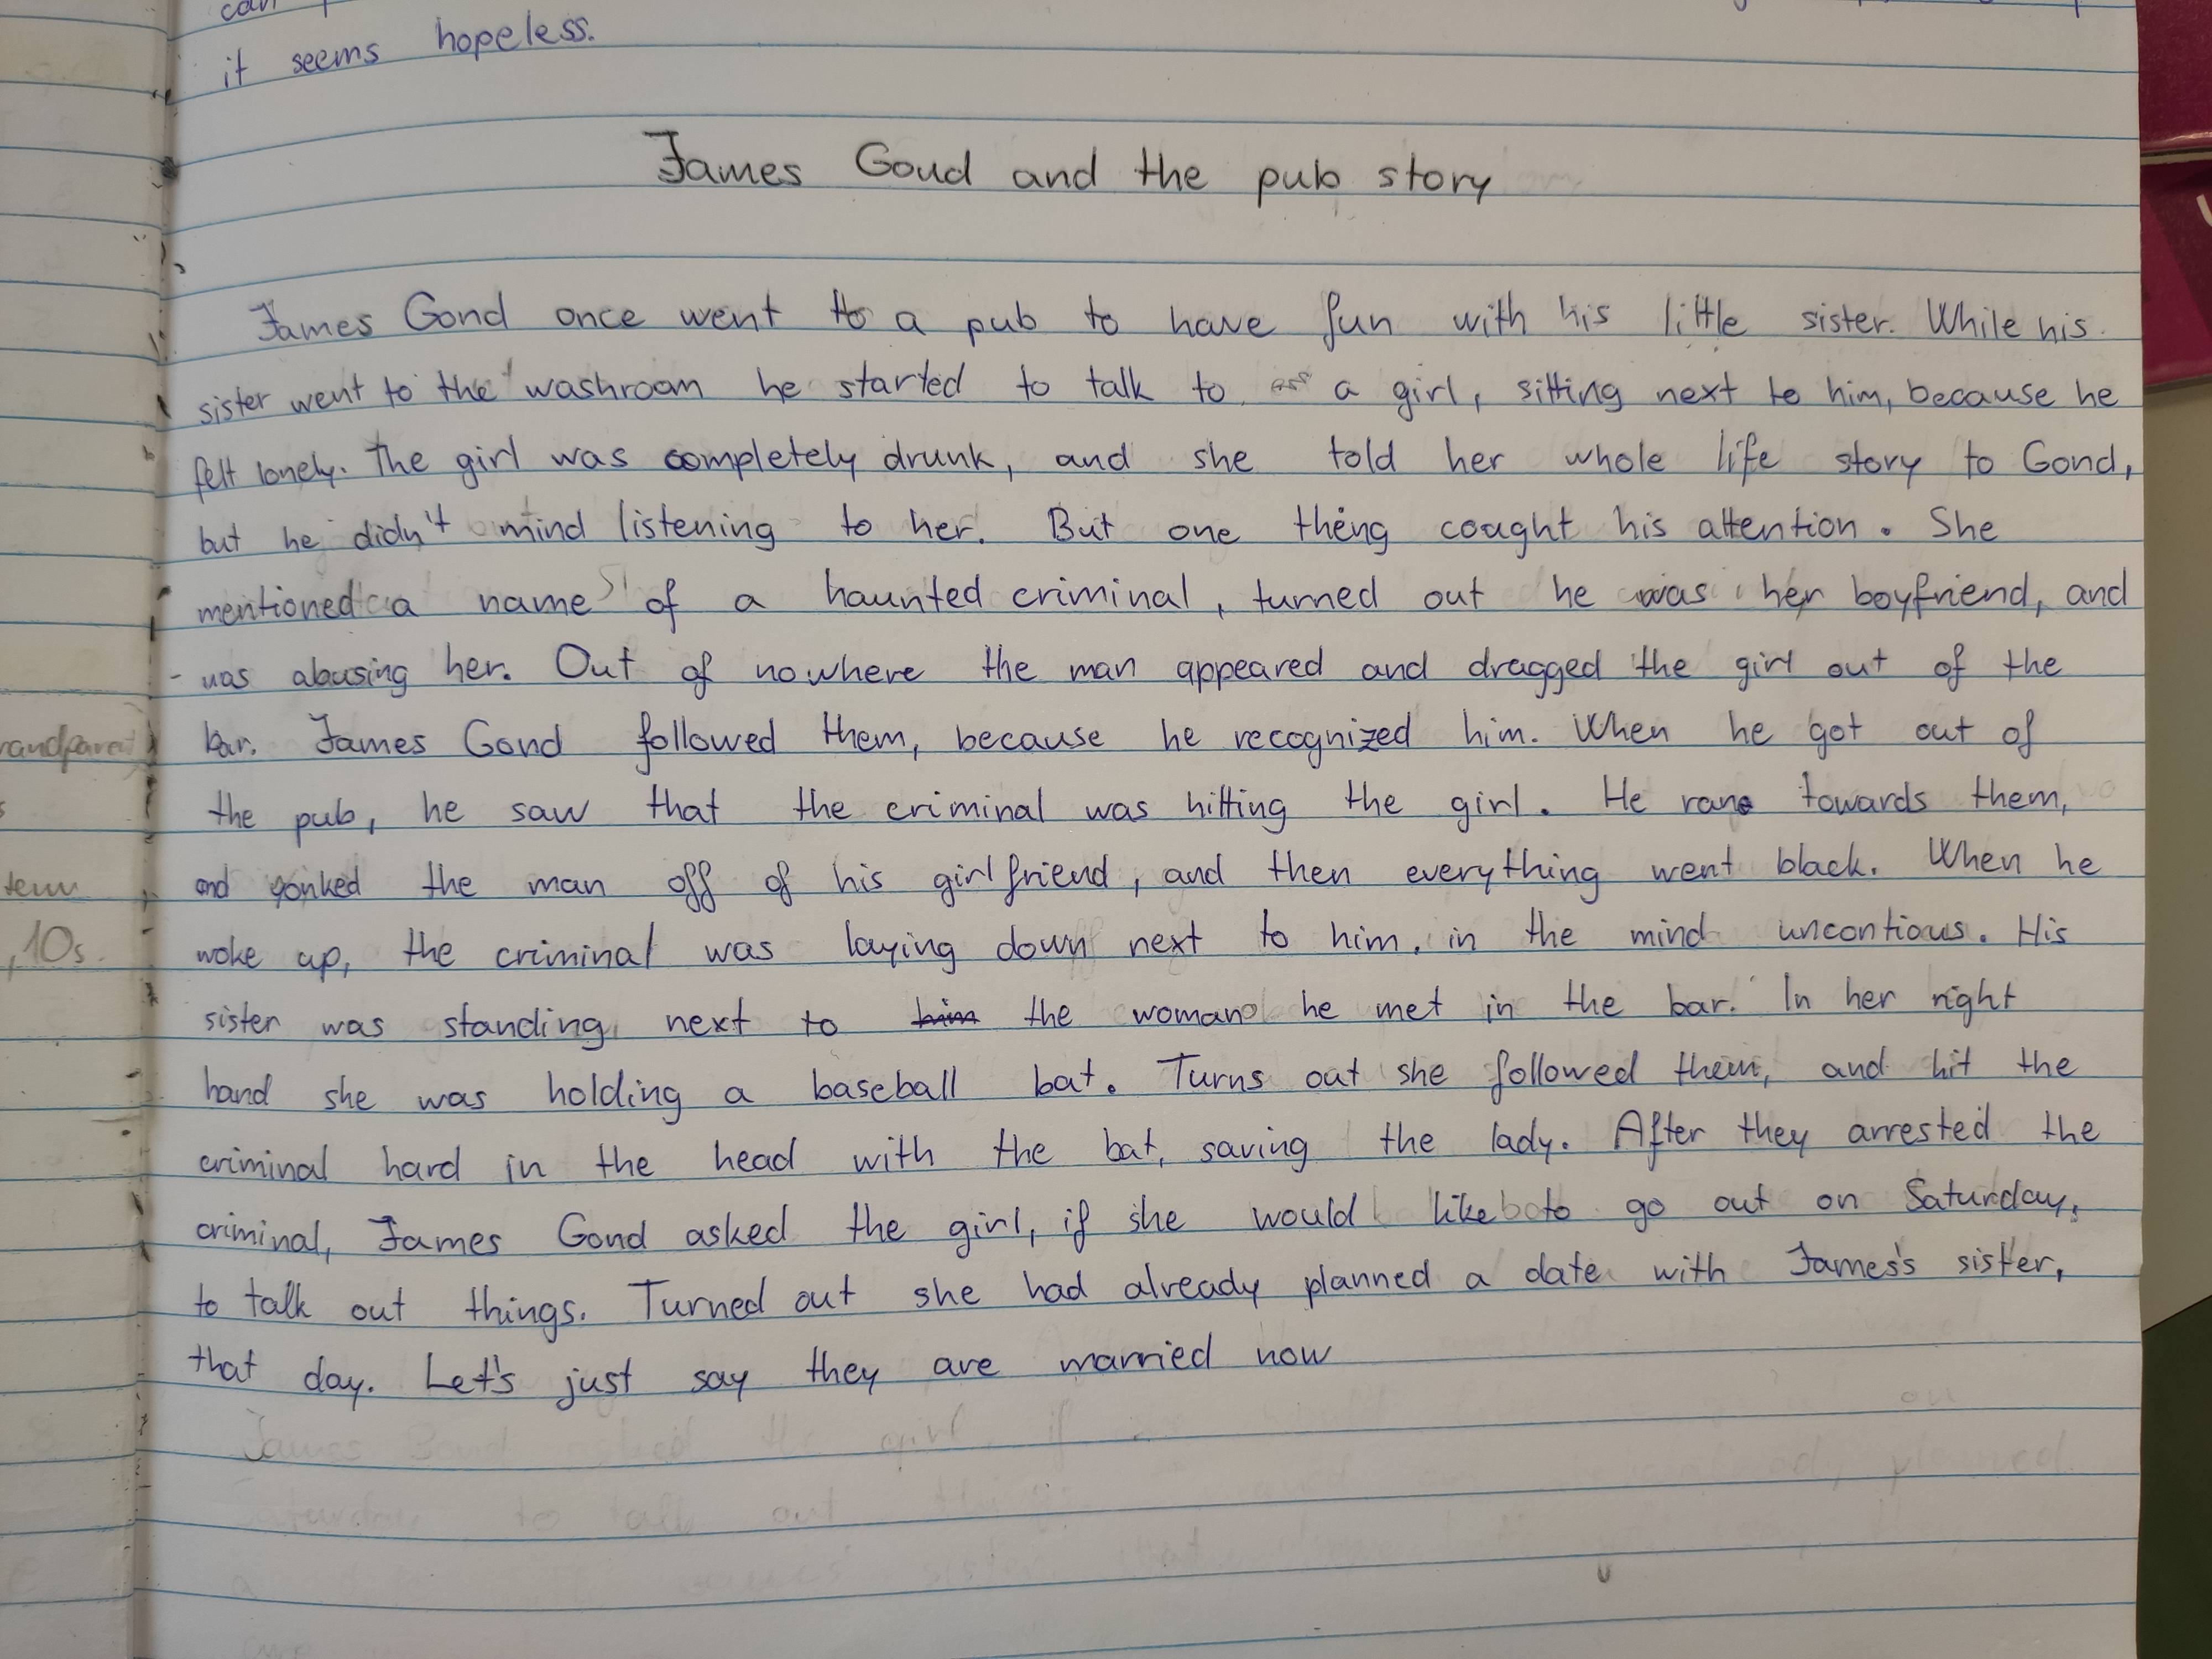 it seems hopeless.
James Goud and the pub story
James Gond once went to a pub to have fun with his little sister. While his
sister went to the washroom he started to talk to a girl, sitting next to him, because he
felt lonely. The girl was completely drunk, and she told her whole life story to Gond,
but he didn't mind listening to her. But one thing cought his attention. She
mentioned a name of a haunted criminal, turned out he was her boyfriend, and
was abusing her. Out of nowhere the man appeared and dragged the girl out of the
bar. James Gond followed them, because he recognized him. When he got out of
the pub, he saw that the criminal was hitting the girl. He ran towards them,
and yonked the man off of his girlfriend, and then everything went black. When he
woke up, the criminal was laying down next to him, in the mind uncontious. His
sister was standing next to him the woman he met in the bar. In her right
hand she was holding a baseball bat. Turns out she followed them, and hit the
criminal hard in the head with the bat, saving the lady. After they arrested the
criminal, James Gond asked the girl, if she would like to go out on Saturday,
to talk out things. Turned out she had already planned a date with James's sister,
that day. Let's just say they are married now
randparent
10s.